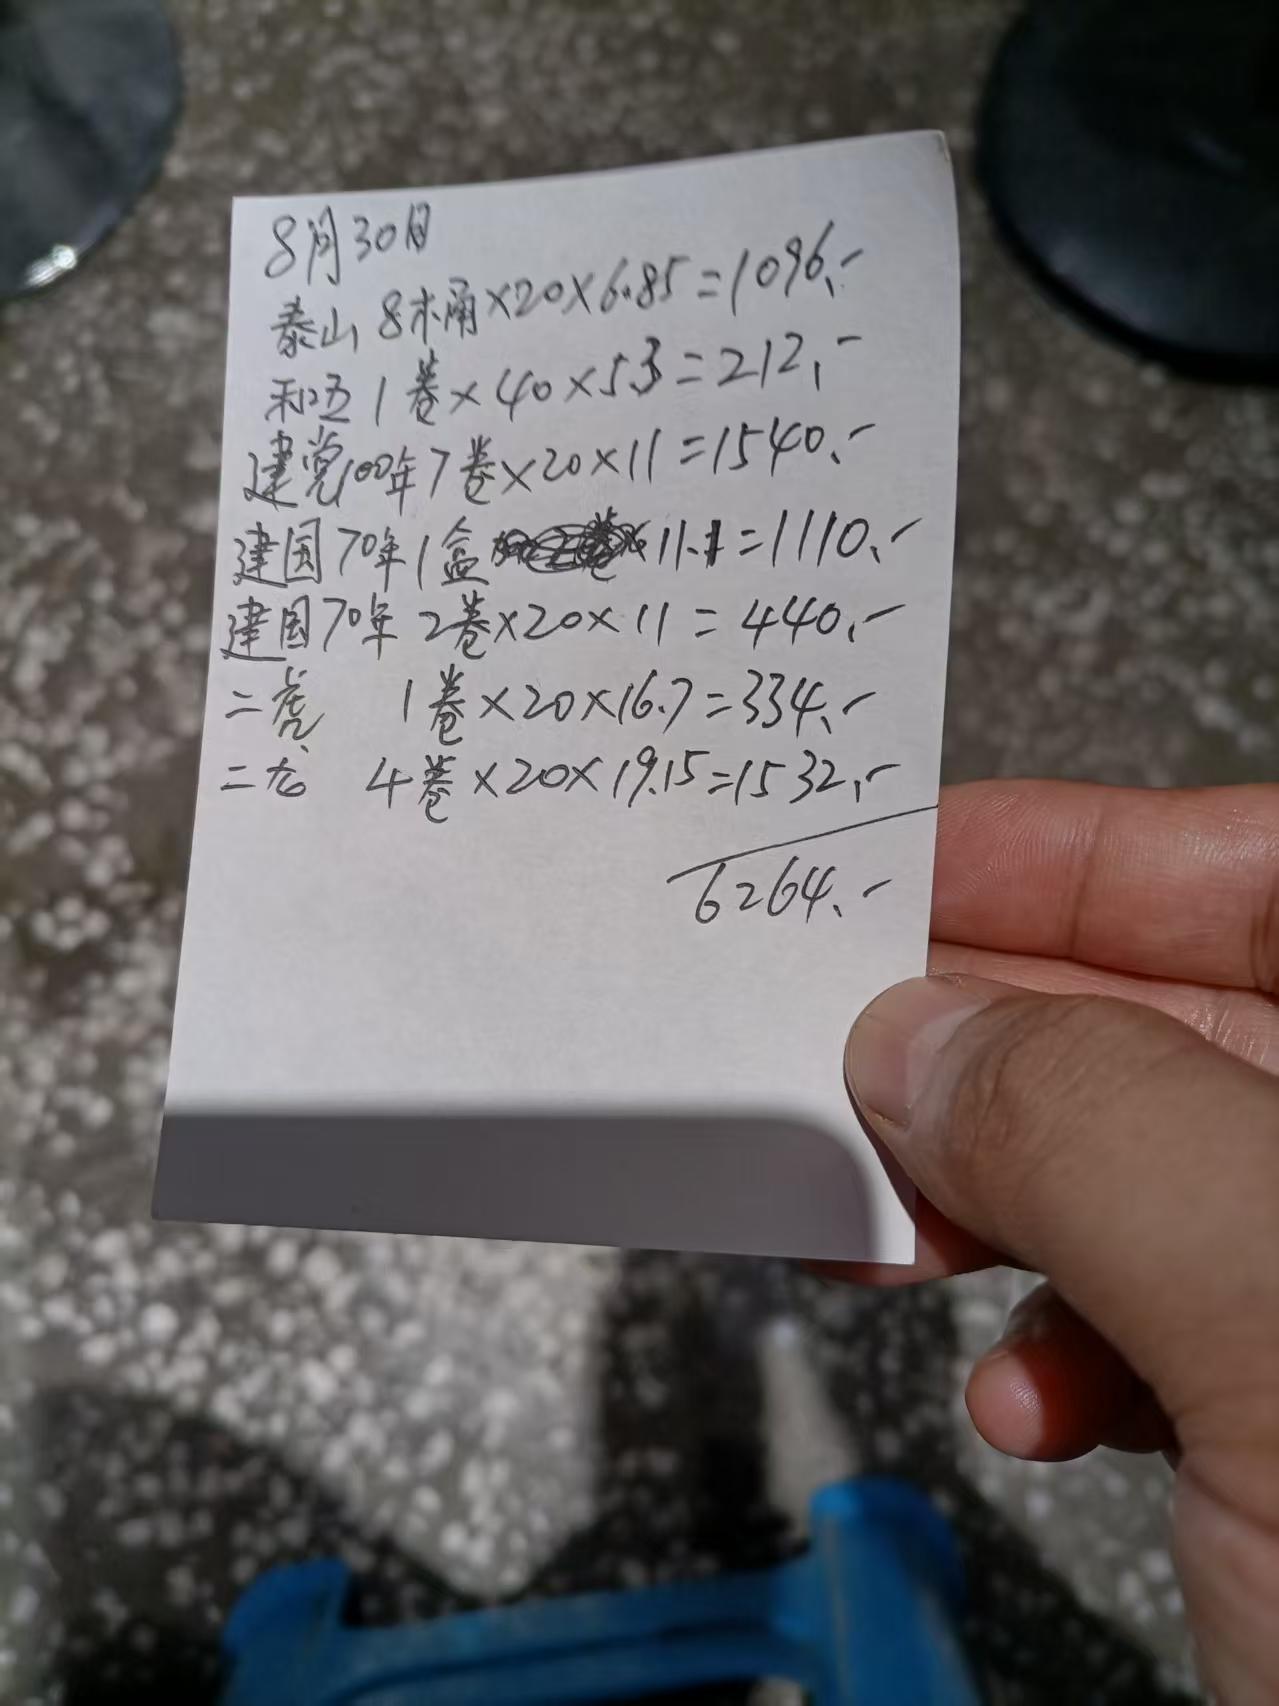 8月30日
泰山 8木桶×20×6.85=1096.-
和五 1卷×40×5.3=212.-
建党100年7卷×20×11=1540.-
建国70年1盒 11.1=1110.-
建国70年 2卷×20×11=440.-
二虎 1卷×20×16.7=334.-
二龙 4卷×20×19.15=1532.-
6264.-